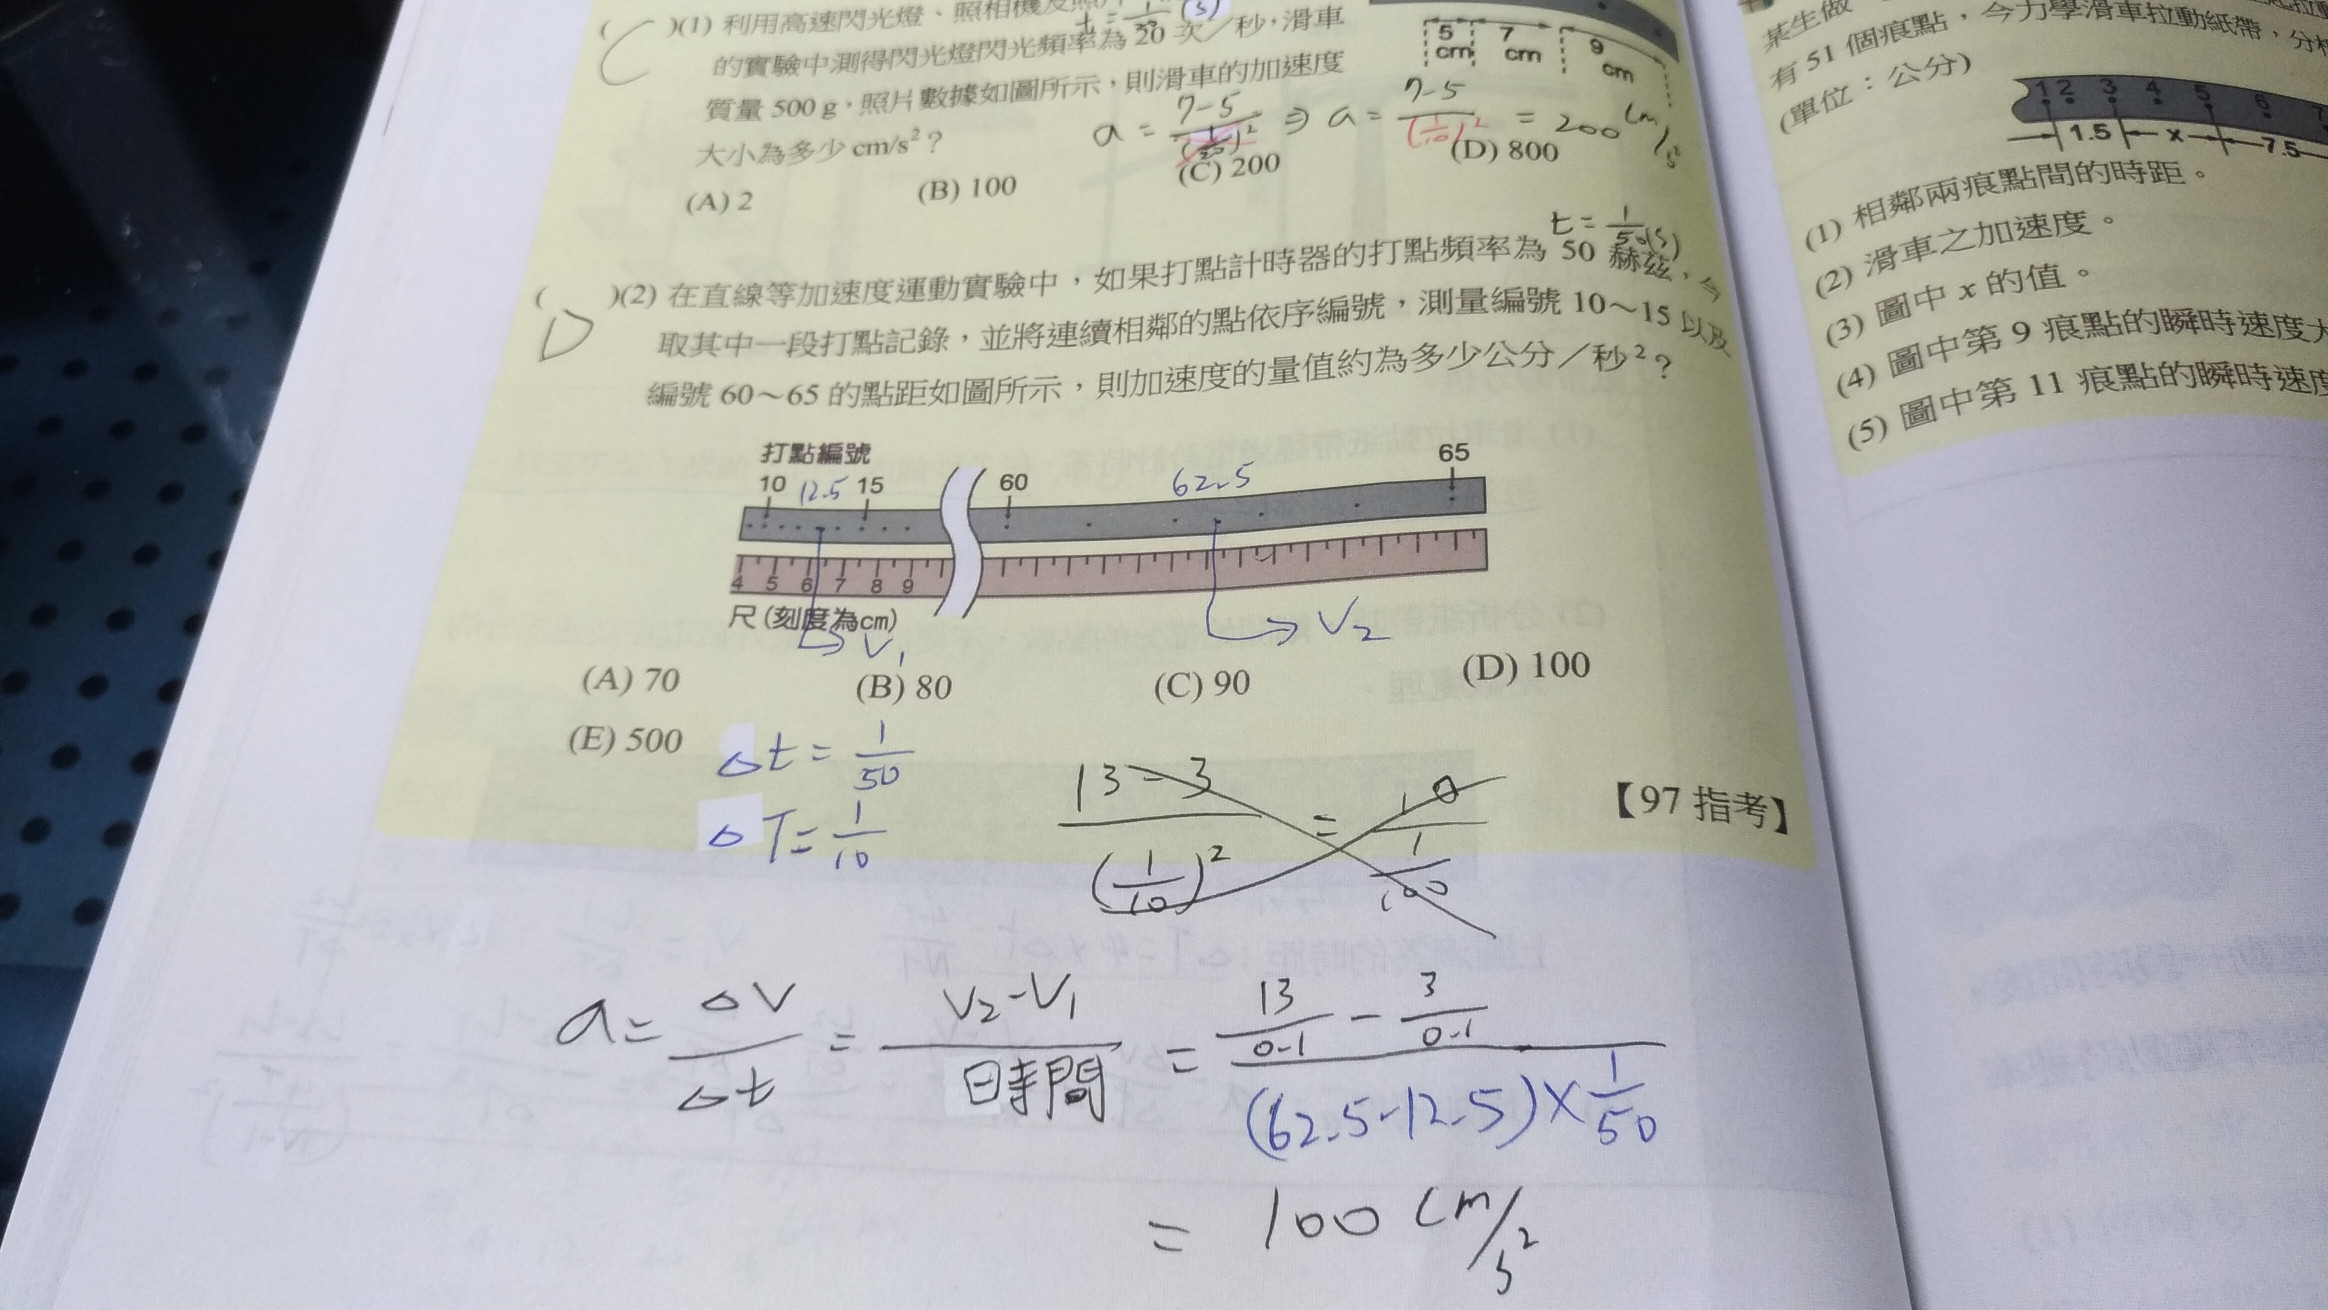 ( C )(1) 利用高速閃光燈、照相機及照片
t = 1/20 (s)
的實驗中測得閃光燈閃光頻率為 20 次／秒，滑車
質量 500 g，照片數據如圖所示，則滑車的加速度
大小為多少 cm/s²？
5 cm 7 cm 9 cm
a = (7-5)/(1/20)² ⇒ a = (7-5)/(1/10)² = 200 cm/s²
(A) 2 (B) 100 (C) 200 (D) 800
t = 1/50 (s)
( D )(2) 在直線等加速度運動實驗中，如果打點計時器的打點頻率為 50 赫茲，今
取其中一段打點記錄，並將連續相鄰的點依序編號，測量編號 10～15 以及
編號 60～65 的點距如圖所示，則加速度的量值約為多少公分／秒²？
打點編號
10 12.5 15 60 62.5 65
4 5 6 7 8 9
尺(刻度為cm)
V₁ V₂
(A) 70 (B) 80 (C) 90 (D) 100
(E) 500
【97 指考】
△t = 1/50
△T = 1/10
(13-3)/(1/10)² = 10/(1/100)
a = △V/△t = (V₂-V₁)/時間 = (13/0.1 - 3/0.1)/((62.5-12.5)×1/50)
= 100 cm/s²
某生做
有 51 個痕點，今力學滑車拉動紙帶，分析
(單位：公分)
1 2 3 4 5 6 7
1.5 x 7.5
(1) 相鄰兩痕點間的時距。
(2) 滑車之加速度。
(3) 圖中 x 的值。
(4) 圖中第 9 痕點的瞬時速度大
(5) 圖中第 11 痕點的瞬時速度